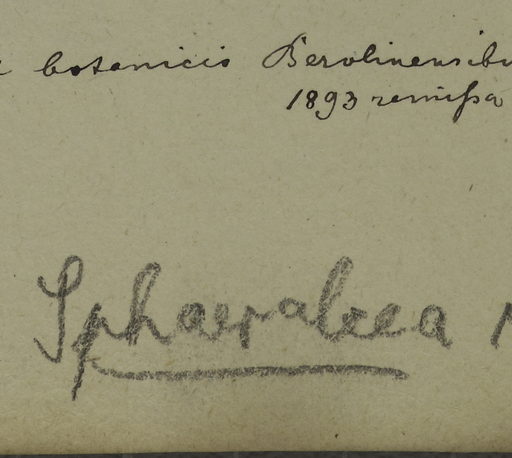 botanicis Berolinensibu
1893 remissa
Sphaeralcea